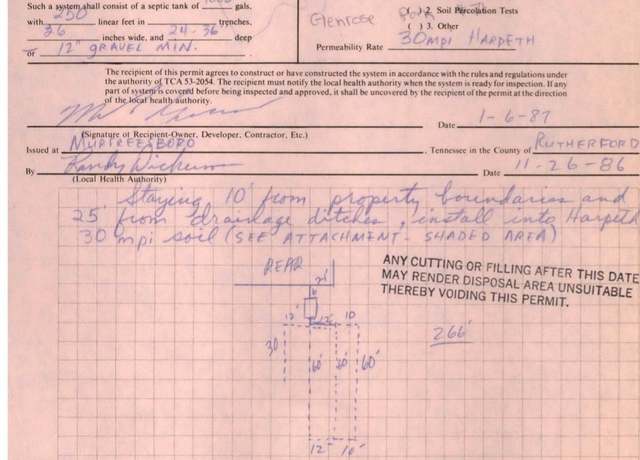 Such a system shall consist of a septic tank of 1000 gals.
with 250 linear feet in trenches.
36 inches wide, and 24-36" deep
or 12" GRAVEL MIN.
Glenrose
( ) 2. Soil Percolation Tests
( ) 3. Other
Permeability Rate 30mpi HARPETH
The recipient of this permit agrees to construct or have constructed the system in accordance with the rules and regulations under
the authority of TCA 53-2054. The recipient must notify the local health authority when the system is ready for inspection. If any
part of system is covered before being inspected and approved, it shall be uncovered by the recipient of the permit at the direction
of the local health authority.
Date 1-6-87
(Signature of Recipient-Owner, Developer, Contractor, Etc.)
Issued at MURFREESBORO, Tennessee in the County of RUTHERFORD
By Randy Date 11-26-86
(Local Health Authority)
Staying 10' from property boundaries and
25' from drainage ditches, install into Harpeth
30 mpi soil (SEE ATTACHMENT - SHADED AREA)
REAR
ANY CUTTING OR FILLING AFTER THIS DATE
MAY RENDER DISPOSAL AREA UNSUITABLE
THEREBY VOIDING THIS PERMIT.
12' 12' 10
266'
30
60' 60' 60'
12' 10'